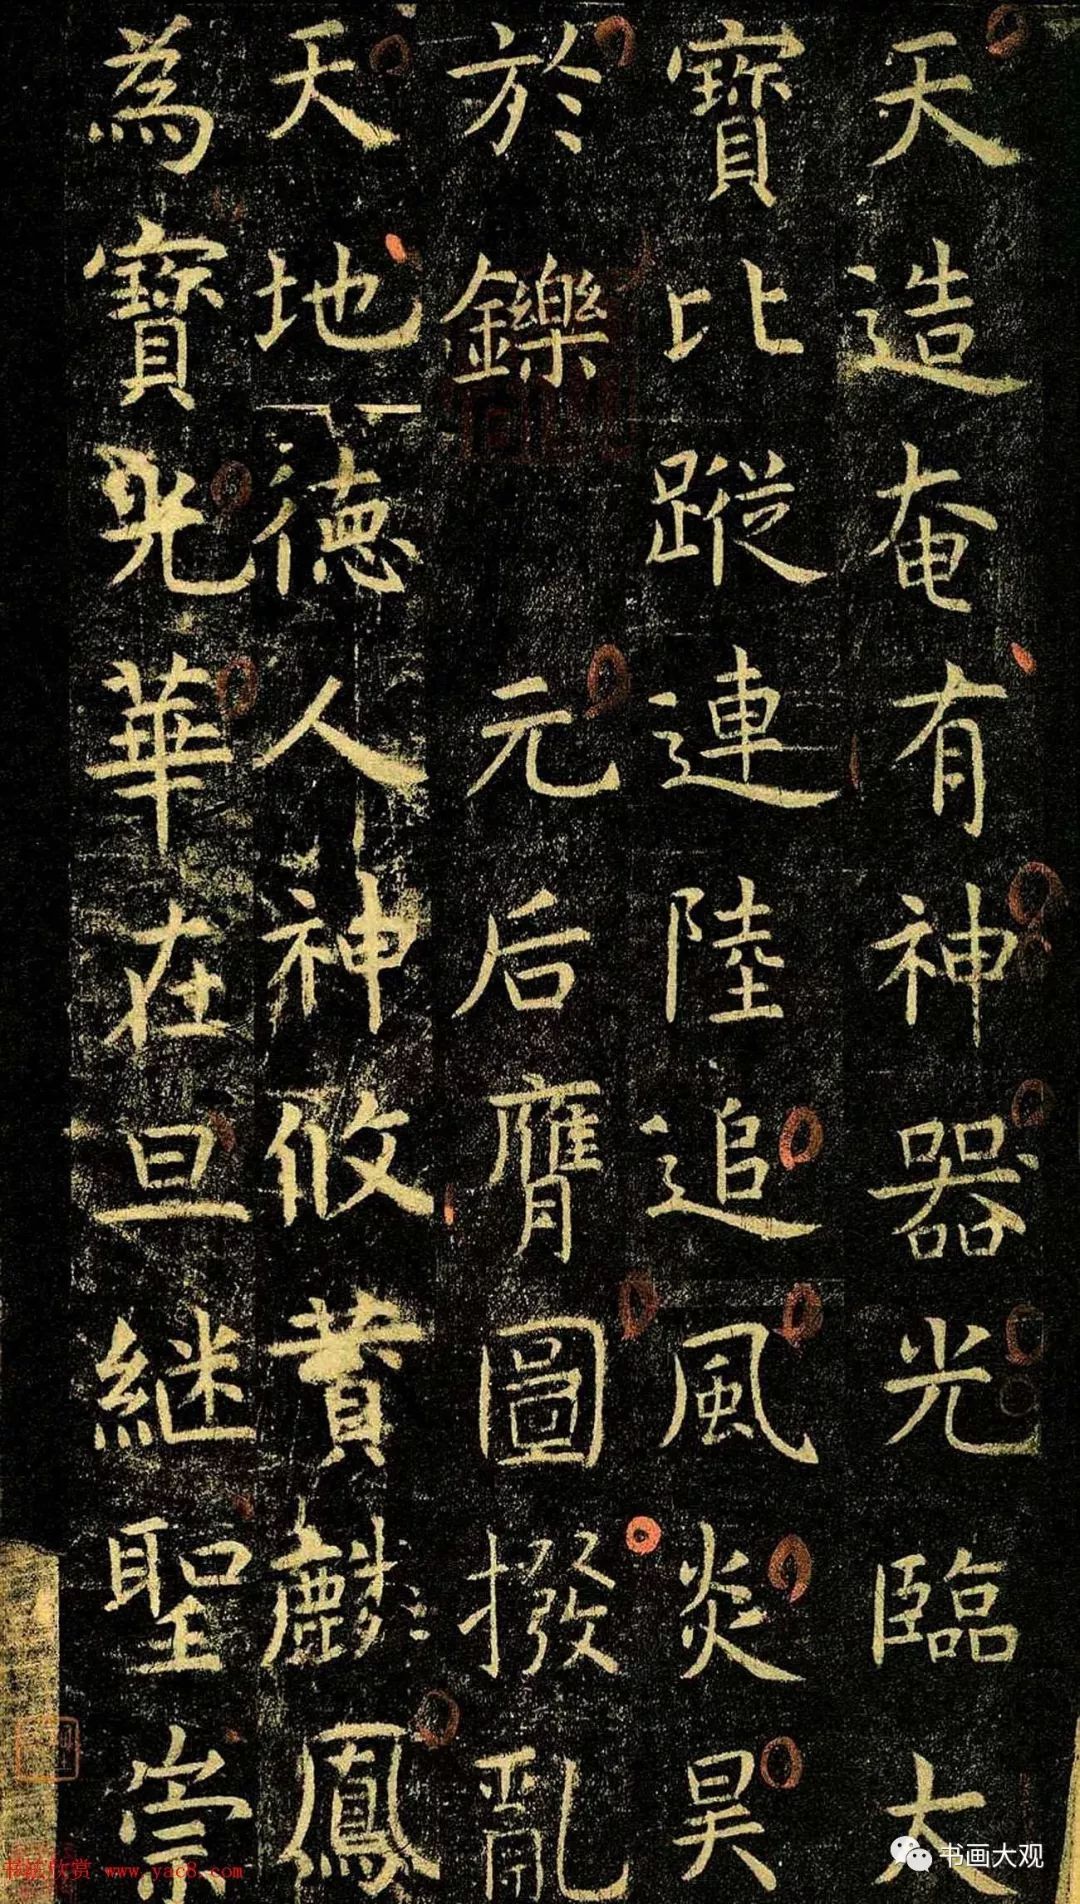 天造奄有神器光臨大
寶比蹤連陸追風炎昊
於鑠 元后膺圖撥亂
天地德人神攸贊麟鳳
為寶光華在旦継聖崇
书画大观
书法欣赏 www.yac8.com